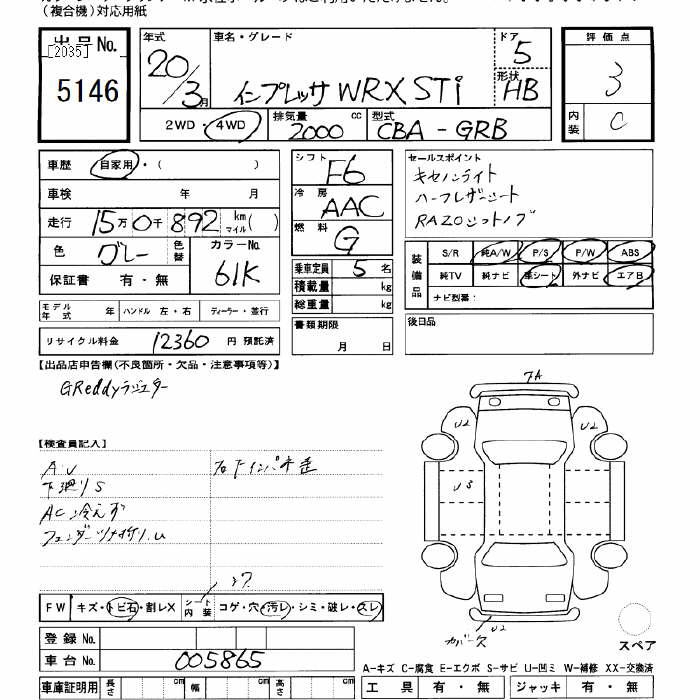 (複合機)対応用紙
出品No.
[2035]
5146
年式 車名・グレード ドア
20/3月 インプレッサ WRX STi 5
形状 HB
2WD・4WD 排気量 2000 cc 型式 CBA-GRB
評価点
3
内装 C
車歴 自家用・( )
車検 年 月
走行 15万0千892 km マイル( )
色 グレー 色替 カラーNo. 61K
保証書 有・無
モデル年式 年 ハンドル 左・右 ディーラー・並行
リサイクル料金 12360 円 預託済
シフト F6
冷房 AAC
燃料 G
乗車定員 5 名
積載量 kg
総重量 kg
書類期限
月 日
セールスポイント
キセノンライト
ハーフレザーシート
RAZOシフトノブ
装備品 S/R 純A/W P/S P/W ABS
純TV 純ナビ 革シート 外ナビ エアB
ナビ型番:
後日品
【出品店申告欄(不良箇所・欠品・注意事項等)】
GReddyラジエター
【検査員記入】
A.U
下廻りS
AC冷えず
フェンダーツメ折り.U
FW キズ・トビ石・割レX シート内装 コゲ・穴・汚レ・シミ・破レ・スレ
登録No.
車台No. 005865
車庫証明用 長さ cm 幅 cm 高さ cm
7A
U2 U2
US
カバー欠 U2
スペア
A-キズ C-腐食 E-エクボ S-サビ U-凹ミ W-補修 XX-交換済
工具 有・無 ジャッキ 有・無